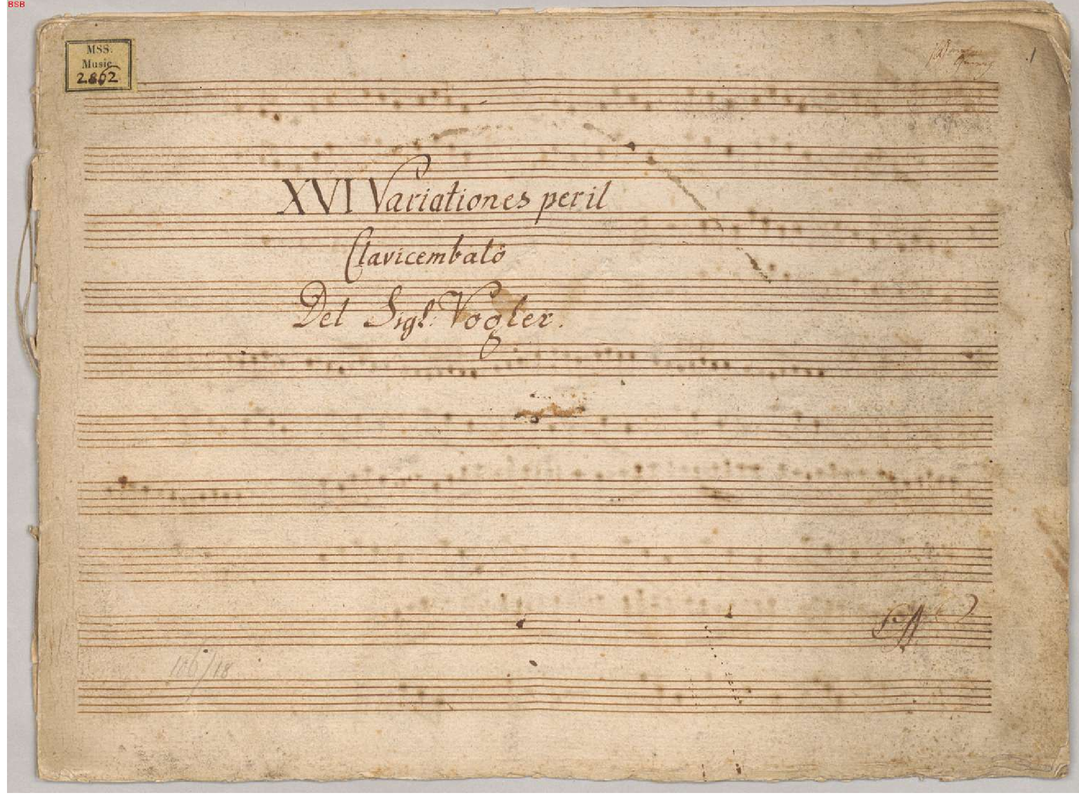 BSB
MSS.
Music.
2862
1
XVI Variationes per il
Clavicembalo
Del Sigr. Vogler.
106/18